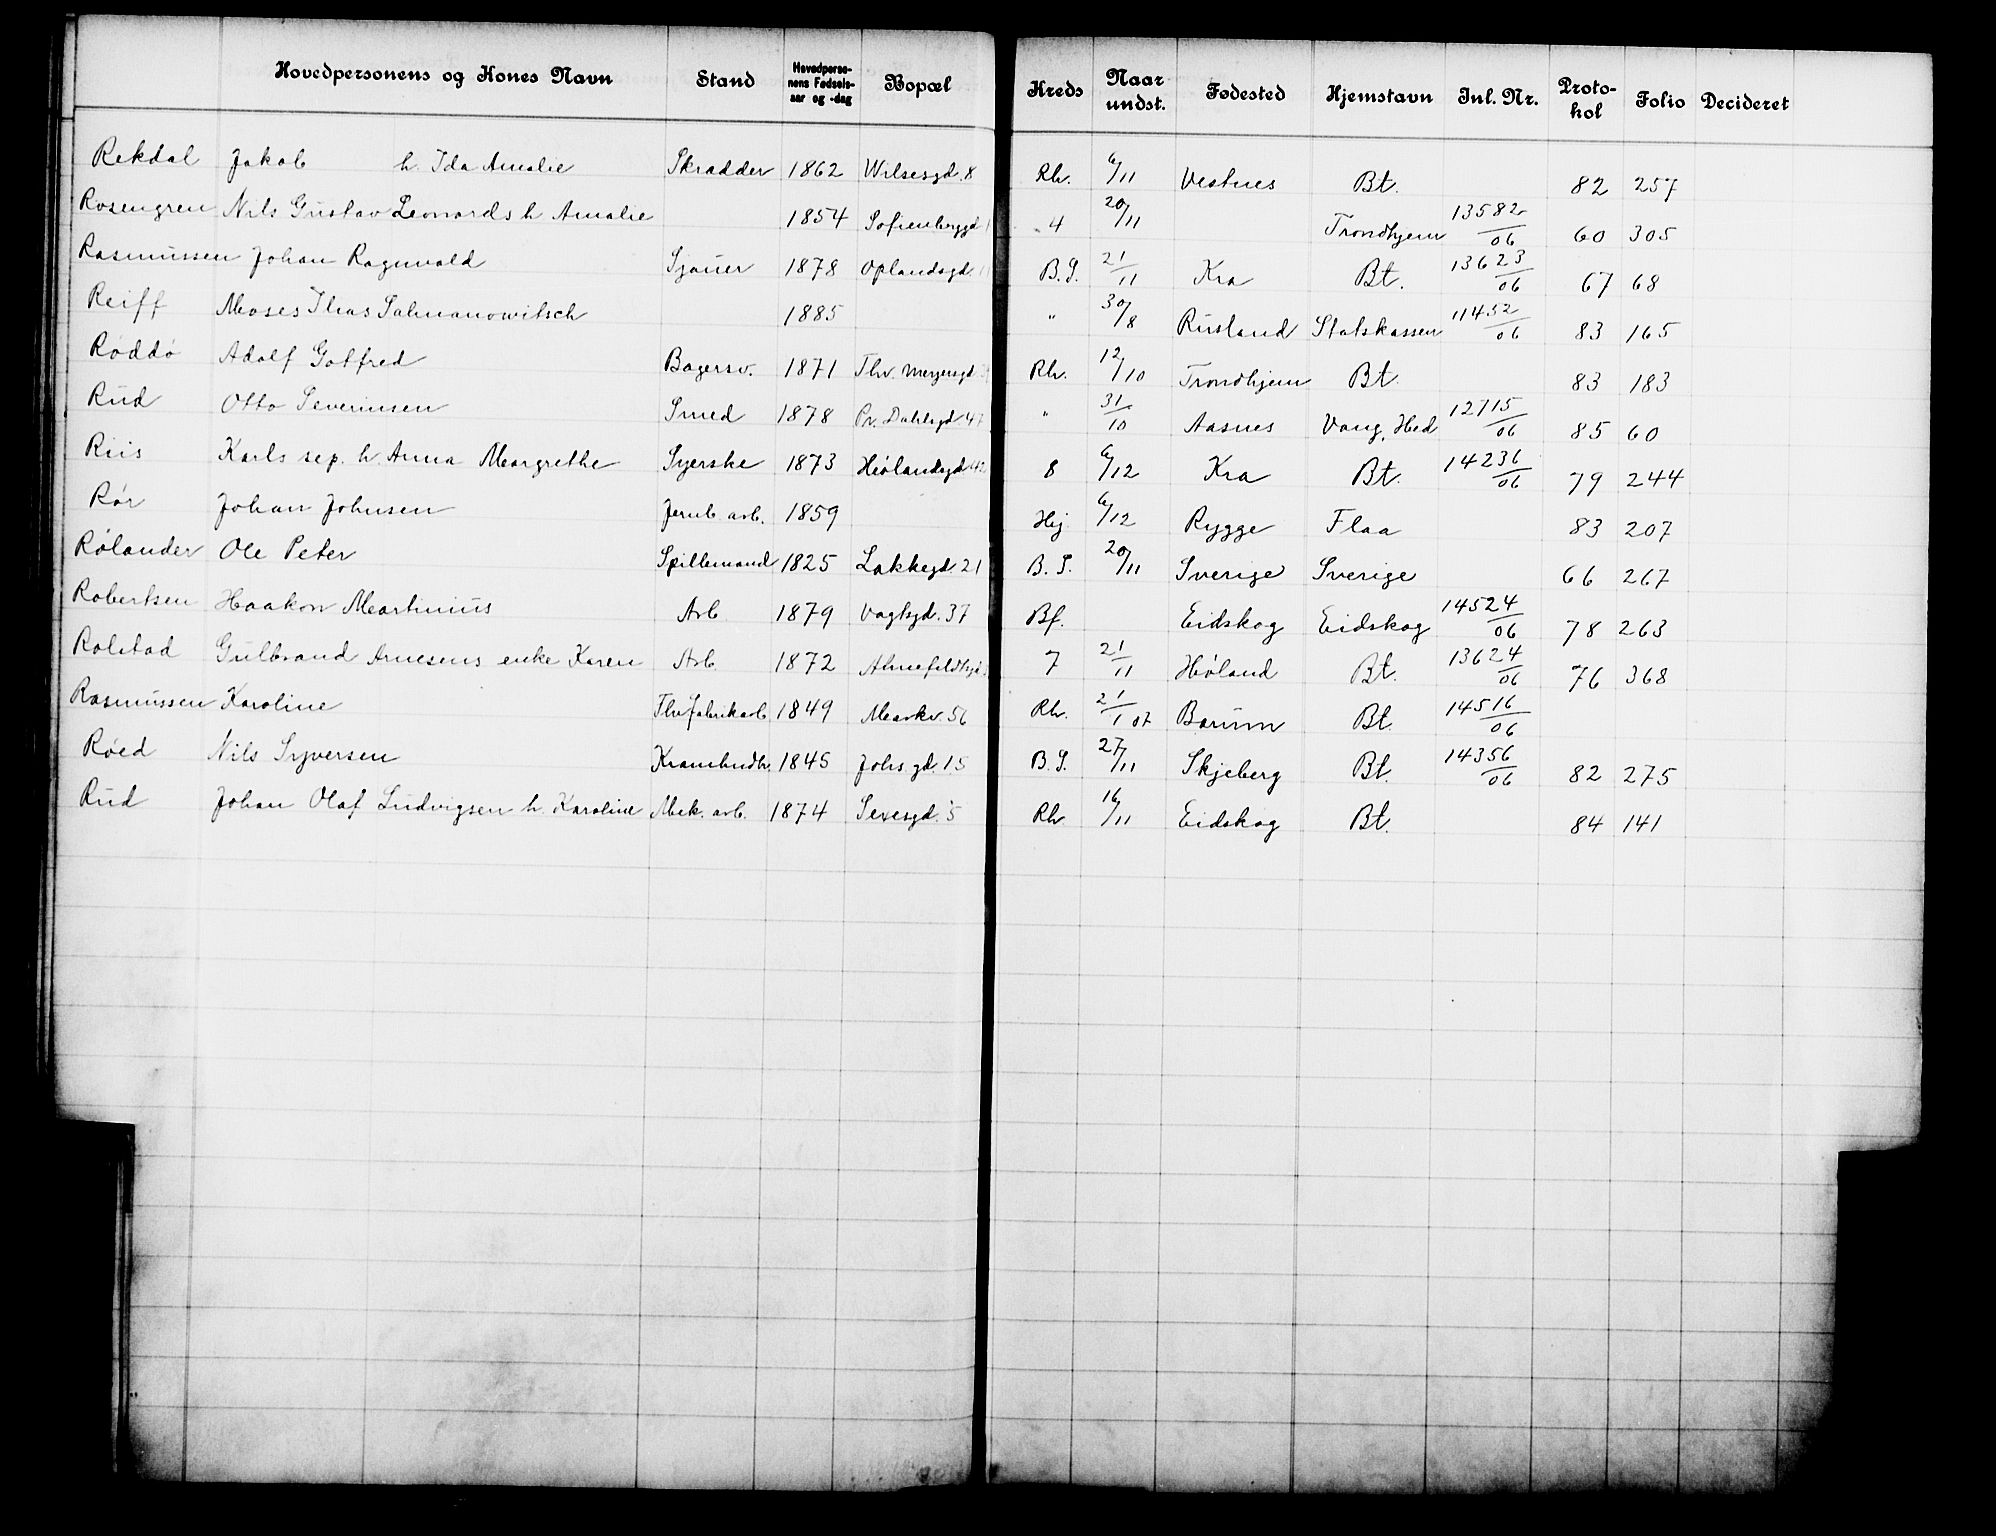 Hovedpersonens og Kones Navn Stand Hovedpersonens Fødselsaar og -dag Bopæl Kreds Naar undst. Fødested Hjemstavn Inl. Nr. Protokol Folio Decideret
Rekdal Jakob h. Ida Amalie Skrædder 1862 Wilsesgd. 8 Rh. 6/11 Vestnes Bt. 82 257
Rosengren Nils Gustav Leonards h Amalie 1854 Sofienberggd 4 20/11 Trondhjem 13582/06 60 305
Rasmussen Johan Ragnvald Sjauer 1878 Oplandsgd. B.G. 21/11 Kra Bt. 13623/06 67 68
Reiff Moses Ilias Salmanowitsch 1885 " 30/8 Rusland Statskassen 11452/06 83 165
Røddø Adolf Gotfred Bagersv. 1871 Thv. Meyersgd Rh. 12/10 Trondhjem Bt. 83 183
Rud Otto Severinsen Smed 1878 Pr. Dahlsgd 47 " 31/10 Aasnes Vang, Hed 12715/06 85 60
Riis Karls sep. h. Anna Margrethe Syerske 1873 Hølandsgd 42 8 6/12 Kra Bt. 14236/06 79 244
Rør Johan Johnsen Jernb. arb. 1859 Hej 6/12 Rygge Flaa 83 207
Rølander Ole Peter Spillemand 1825 Lakkegd. 21 B.G. 20/11 Sverige Sverige 66 267
Robertsen Haakon Martinius Arb 1879 Vogtsgd. 37 Bf. Eidskog Eidskog 14524/06 78 263
Rolstad Gulbrand Arnesens enke Karen Arb. 1872 Ahnefeldtsgd 7 21/11 Høland Bt. 13624/06 76 368
Rasmussen Karoline Thvfabrikarb. 1849 Markv. 56 Rh. 2/1 07 Bærum Bt. 14516/06
Røed Nils Syversen Krambudh. 1845 Johs gd. 15 B.G. 27/11 Skjeberg Bt. 14356/06 82 275
Rud Johan Olaf Ludvigsen h. Karoline Mek. arb. 1874 Sexesgd. 5 Rh 16/11 Eidskog Bt. 84 141